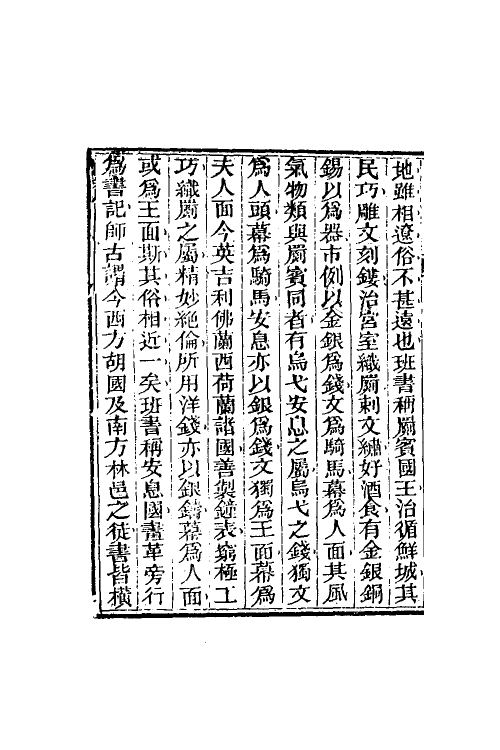 地雖相遼俗不甚遠也班書稱罽賓國王治循鮮城其
民巧雕文刻鏤治宮室織罽刺文繡好酒食有金銀銅
錫以爲器市例以金銀爲錢文爲騎馬幕爲人面其風
氣物類與罽賓同者有烏弋安息之屬烏弋之錢獨文
爲人頭幕爲騎馬安息亦以銀爲錢文獨爲王面幕爲
夫人面今英吉利佛蘭西荷蘭諸國善製鐘表窮極工
巧織罽之屬精妙絕倫所用洋錢亦以銀鑄幕爲人面
或爲王面斯其俗相近一矣班書稱安息國畫革旁行
爲書記師古謂今西方胡國及南方林邑之徒書皆橫